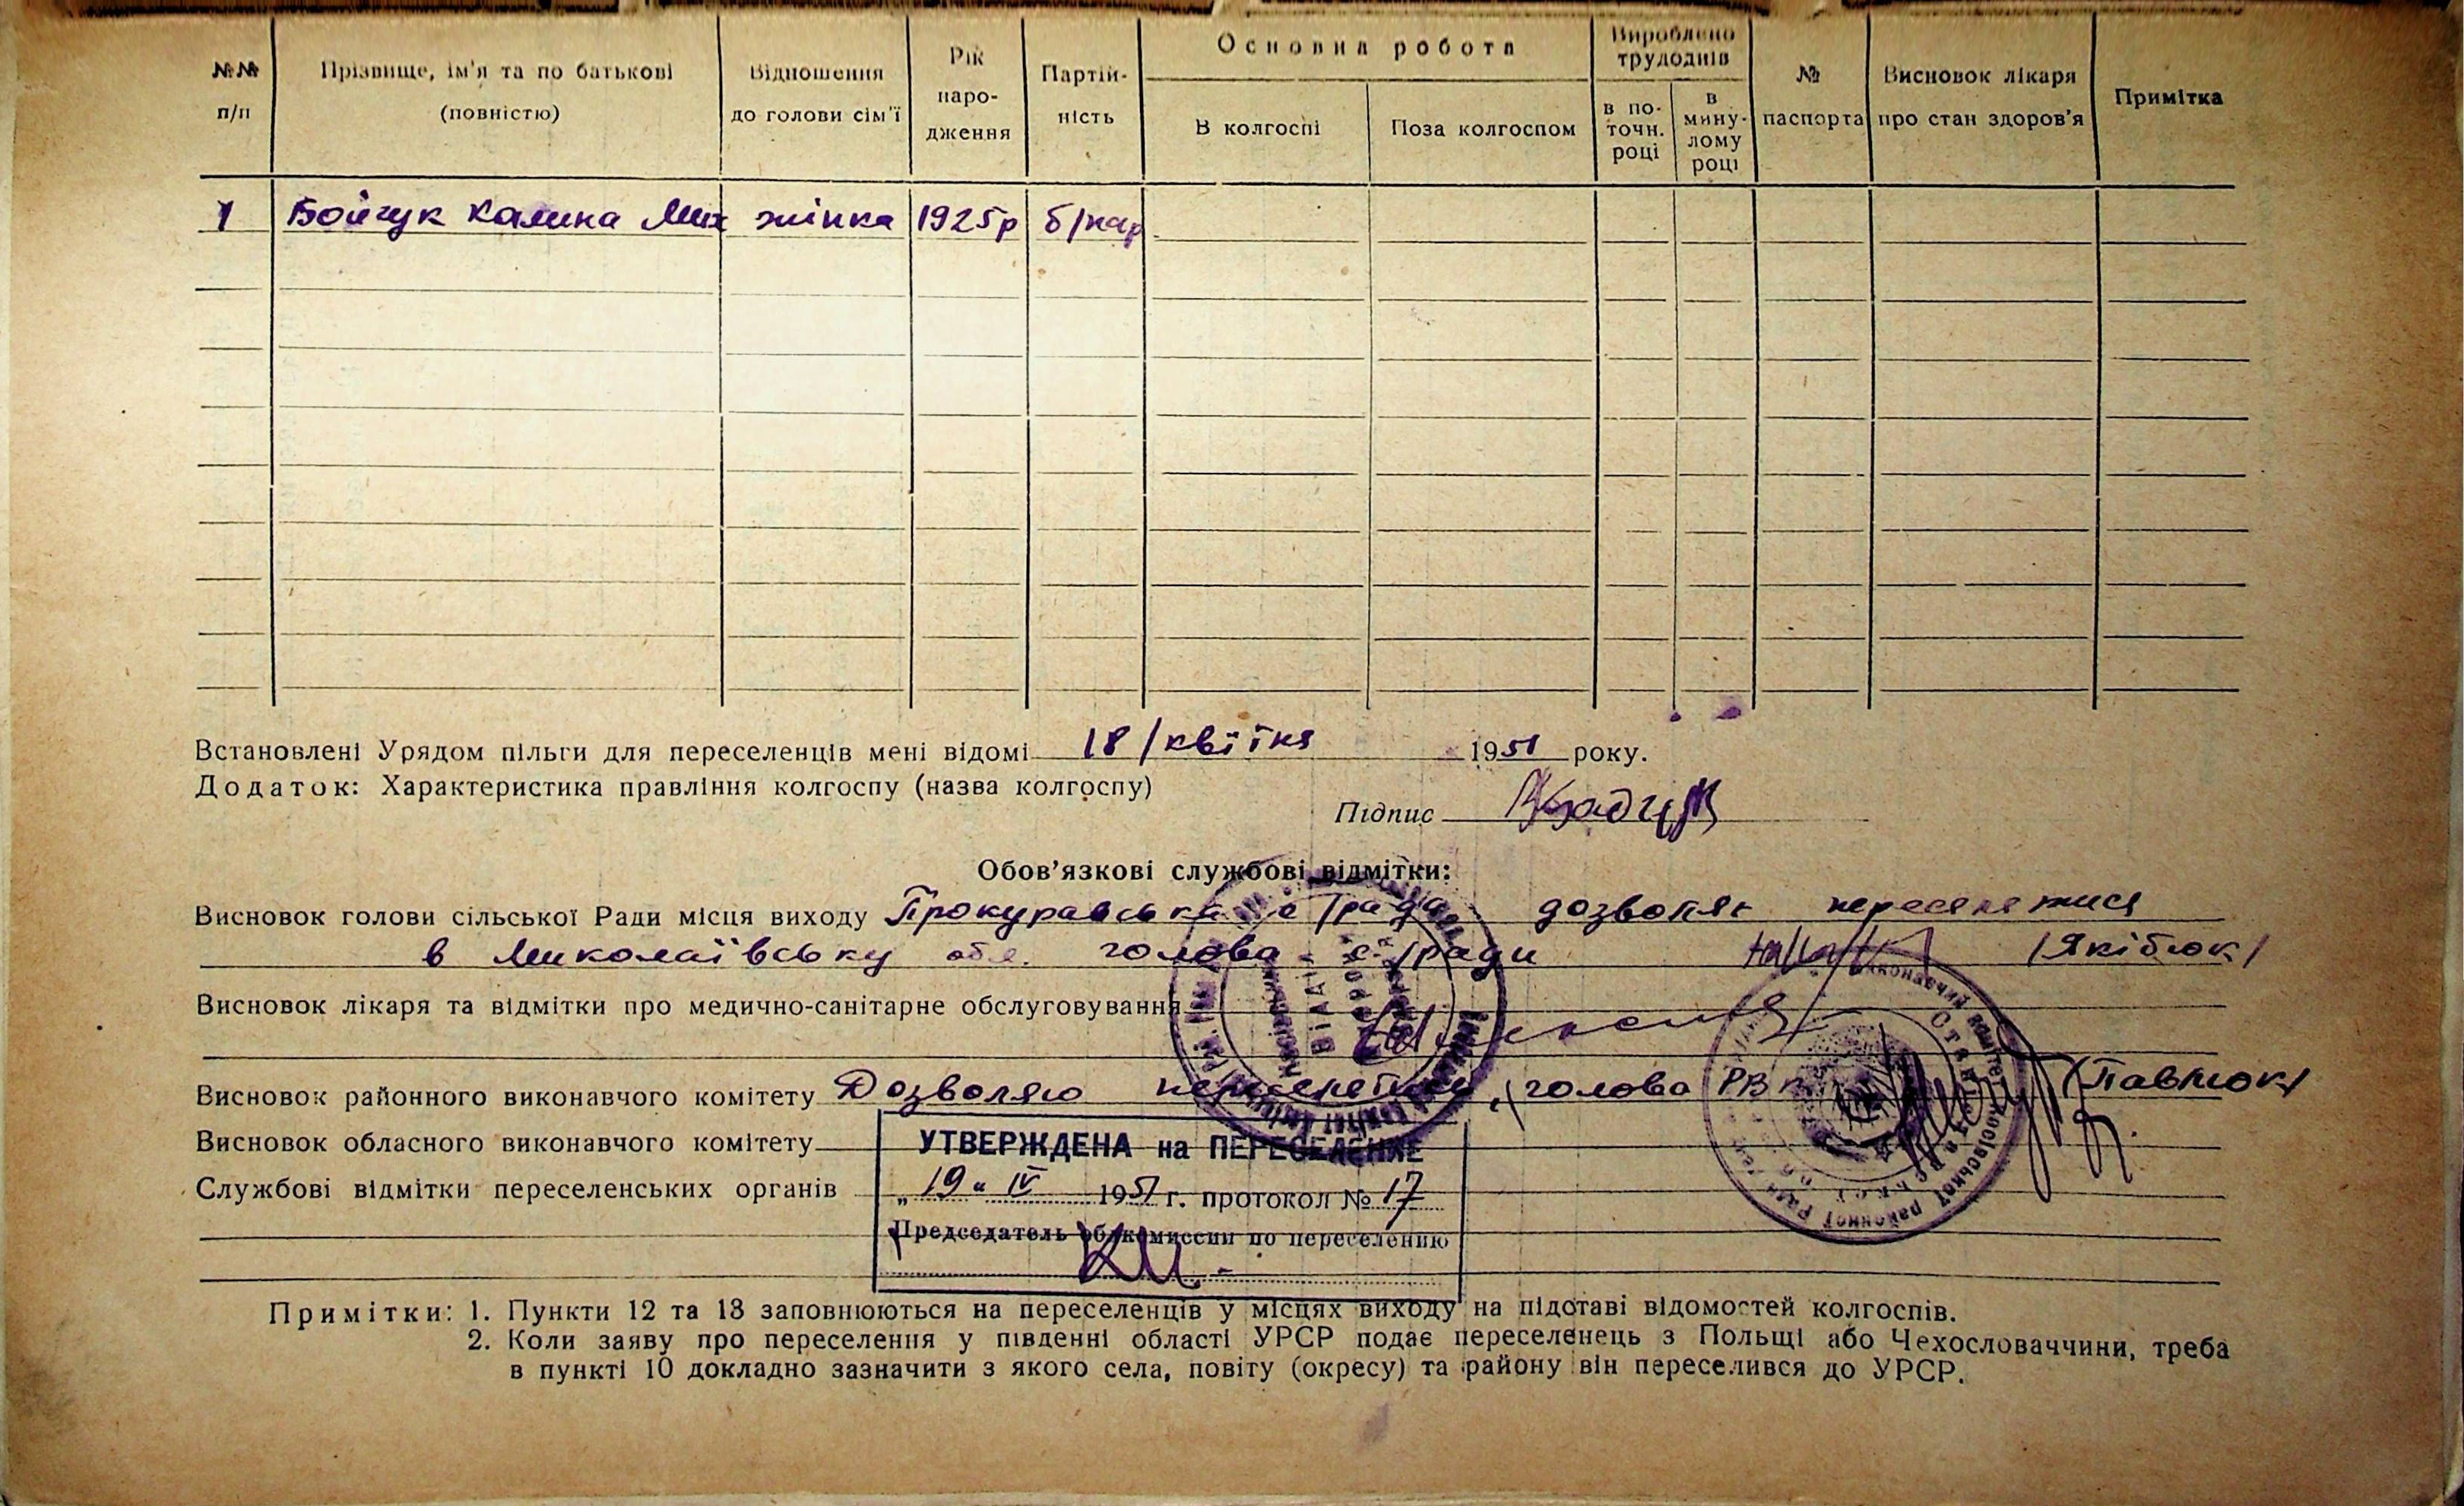 №№ п/п
Прізвище, ім'я та по батькові (повністю)
Відношення до голови сім'ї
Рік наро- дження
Партій- ність
Основна робота
В колгоспі
Поза колгоспом
Вироблено трудоднів
в по- точн. році
в мину- лому році
№ паспорта
Висновок лікаря про стан здоров'я
Примітка
1 Бойчук Калина Мих жінка 1925р б/пар
Встановлені Урядом пільги для переселенців мені відомі 18/квітня 1951 року.
Додаток: Характеристика правління колгоспу (назва колгоспу)
Підпис
Обов'язкові службові відмітки:
Висновок голови сільської Ради місця виходу Прокуравська с/рада дозволяє переселятися
в Миколаївську обл. голова с/ради /Якібюк/
Висновок лікаря та відмітки про медично-санітарне обслуговування
Висновок районного виконавчого комітету Дозволяю голова РВК (Павлюк)
Висновок обласного виконавчого комітету
УТВЕРЖДЕНА на ПЕРЕСЕЛЕНИЕ
Службові відмітки переселенських органів
„19" IV 1951 г. протокол № 17
Председатель облкомиссии по переселению
Примітки: 1. Пункти 12 та 13 заповнюються на переселенців у місцях виходу на підставі відомостей колгоспів.
2. Коли заяву про переселення у південні області УРСР подає переселенець з Польщі або Чехословаччини, треба
в пункті 10 докладно зазначити з якого села, повіту (окресу) та району він переселився до УРСР.